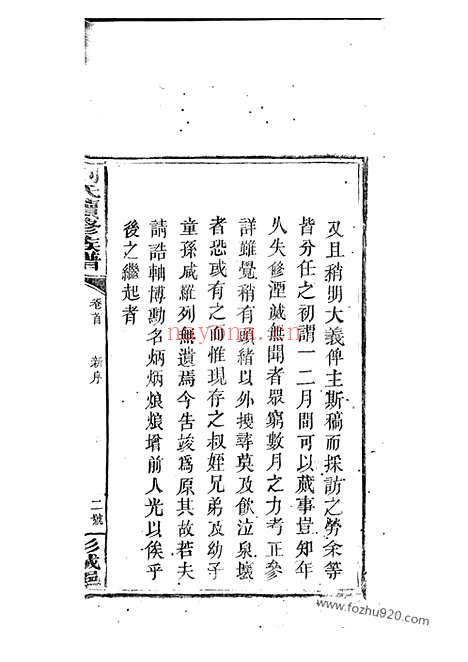 又且稍明大義俾主斯稿而採訪之勞余等
皆分任之初謂一二月間可以蕆事豈知年
久失修湮滅無聞者眾窮數月之力考正參
詳雖覺稍有頭緒以外搜尋莫及飲泣泉壤
者恐或有之而惟現存之叔姪兄弟及幼子
童孫咸羅列無遺焉今告竣爲原其故若夫
請誥軸博勳名炳炳烺烺增前人光以俟乎
後之繼起者
氏續修族譜
卷首 新序 二號 彭城邑
nayong.cn
www.fozhu920.com